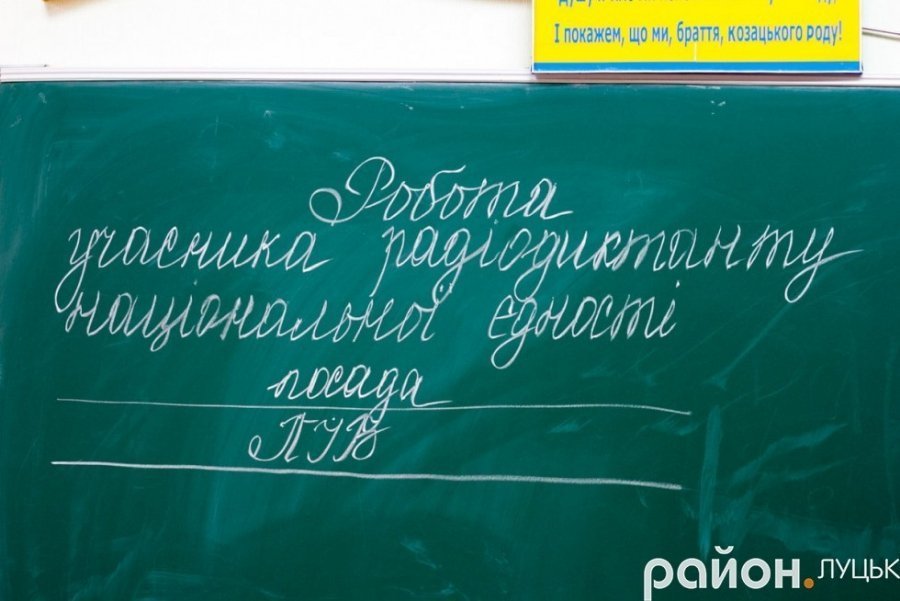 І покажем, що ми, браття, козацького роду!
Робота
учасника радіодиктанту
національної єдності
посада
ПІВ
район.ЛУЦЬК